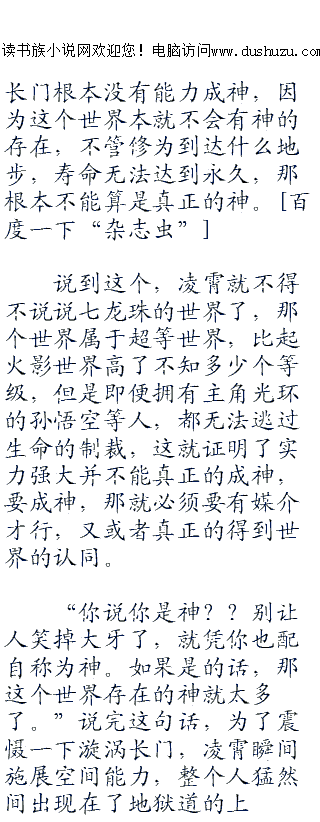 读书族小说网欢迎您！电脑访问www.dushuzu.com
长门根本没有能力成神，因
为这个世界本就不会有神的
存在，不管修为到达什么地
步，寿命无法达到永久，那
根本不能算是真正的神。[百
度一下“杂志虫”]
说到这个，凌霄就不得
不说说七龙珠的世界了，那
个世界属于超等世界，比起
火影世界高了不知多少个等
级，但是即便拥有主角光环
的孙悟空等人，都无法逃过
生命的制裁，这就证明了实
力强大并不能真正的成神，
要成神，那就必须要有媒介
才行，又或者真正的得到世
界的认同。
“你说你是神？？别让
人笑掉大牙了，就凭你也配
自称为神。如果是的话，那
这个世界存在的神就太多
了。”说完这句话，为了震
慑一下漩涡长门，凌霄瞬间
施展空间能力，整个人猛然
间出现在了地狱道的上